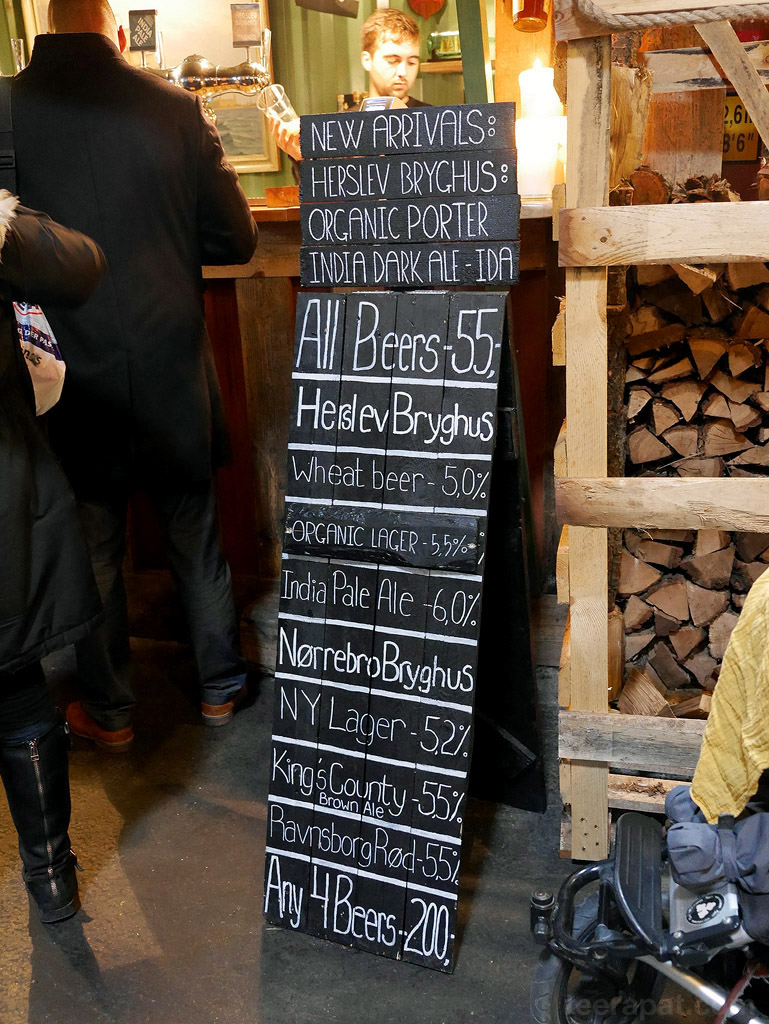 INDIA
PALE
NEW ARRIVALS:
HERSLEV BRYGHUS:
ORGANIC PORTER
INDIA DARK ALE - IDA
All Beers - 55,-
Herslev Bryghus
Wheat beer - 5,0%
ORGANIC LAGER - 5,5%
India Pale Ale - 6,0%
Nørrebro Bryghus
NY Lager - 5,2%
King's County - 5,5%
Brown Ale
Ravnsborg Rød - 5,5%
Any 4 Beers - 200,-
2,6
8'6"